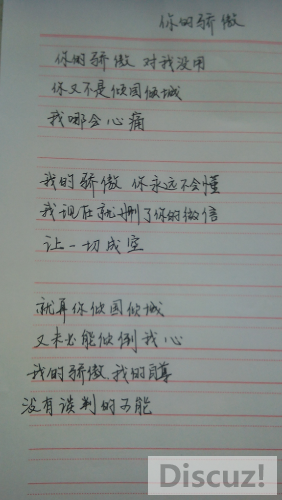 你的骄傲
你的骄傲 对我没用
你又不是倾国倾城
我哪会心痛
我的骄傲 你永远不会懂
我现在就删了你的微信
让一切成空
就算你倾国倾城
又未必能倾倒我心
我的骄傲,我的自尊
没有谈判的可能
Discuz!